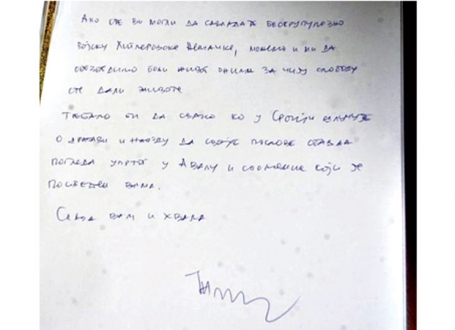 Ако сте ви могли да савладате бескрупулозну
војску Хитлеровске Немачке, можемо и ми да
обезбедимо бољи живот онима за чију слободу
сте дали животе.
требало би да свако ко у Србији одлучује
о држави и народу да своје послове обавља
погледа упртог у Авалу и споменик који је
посвећен вама.
Слава вам и хвала